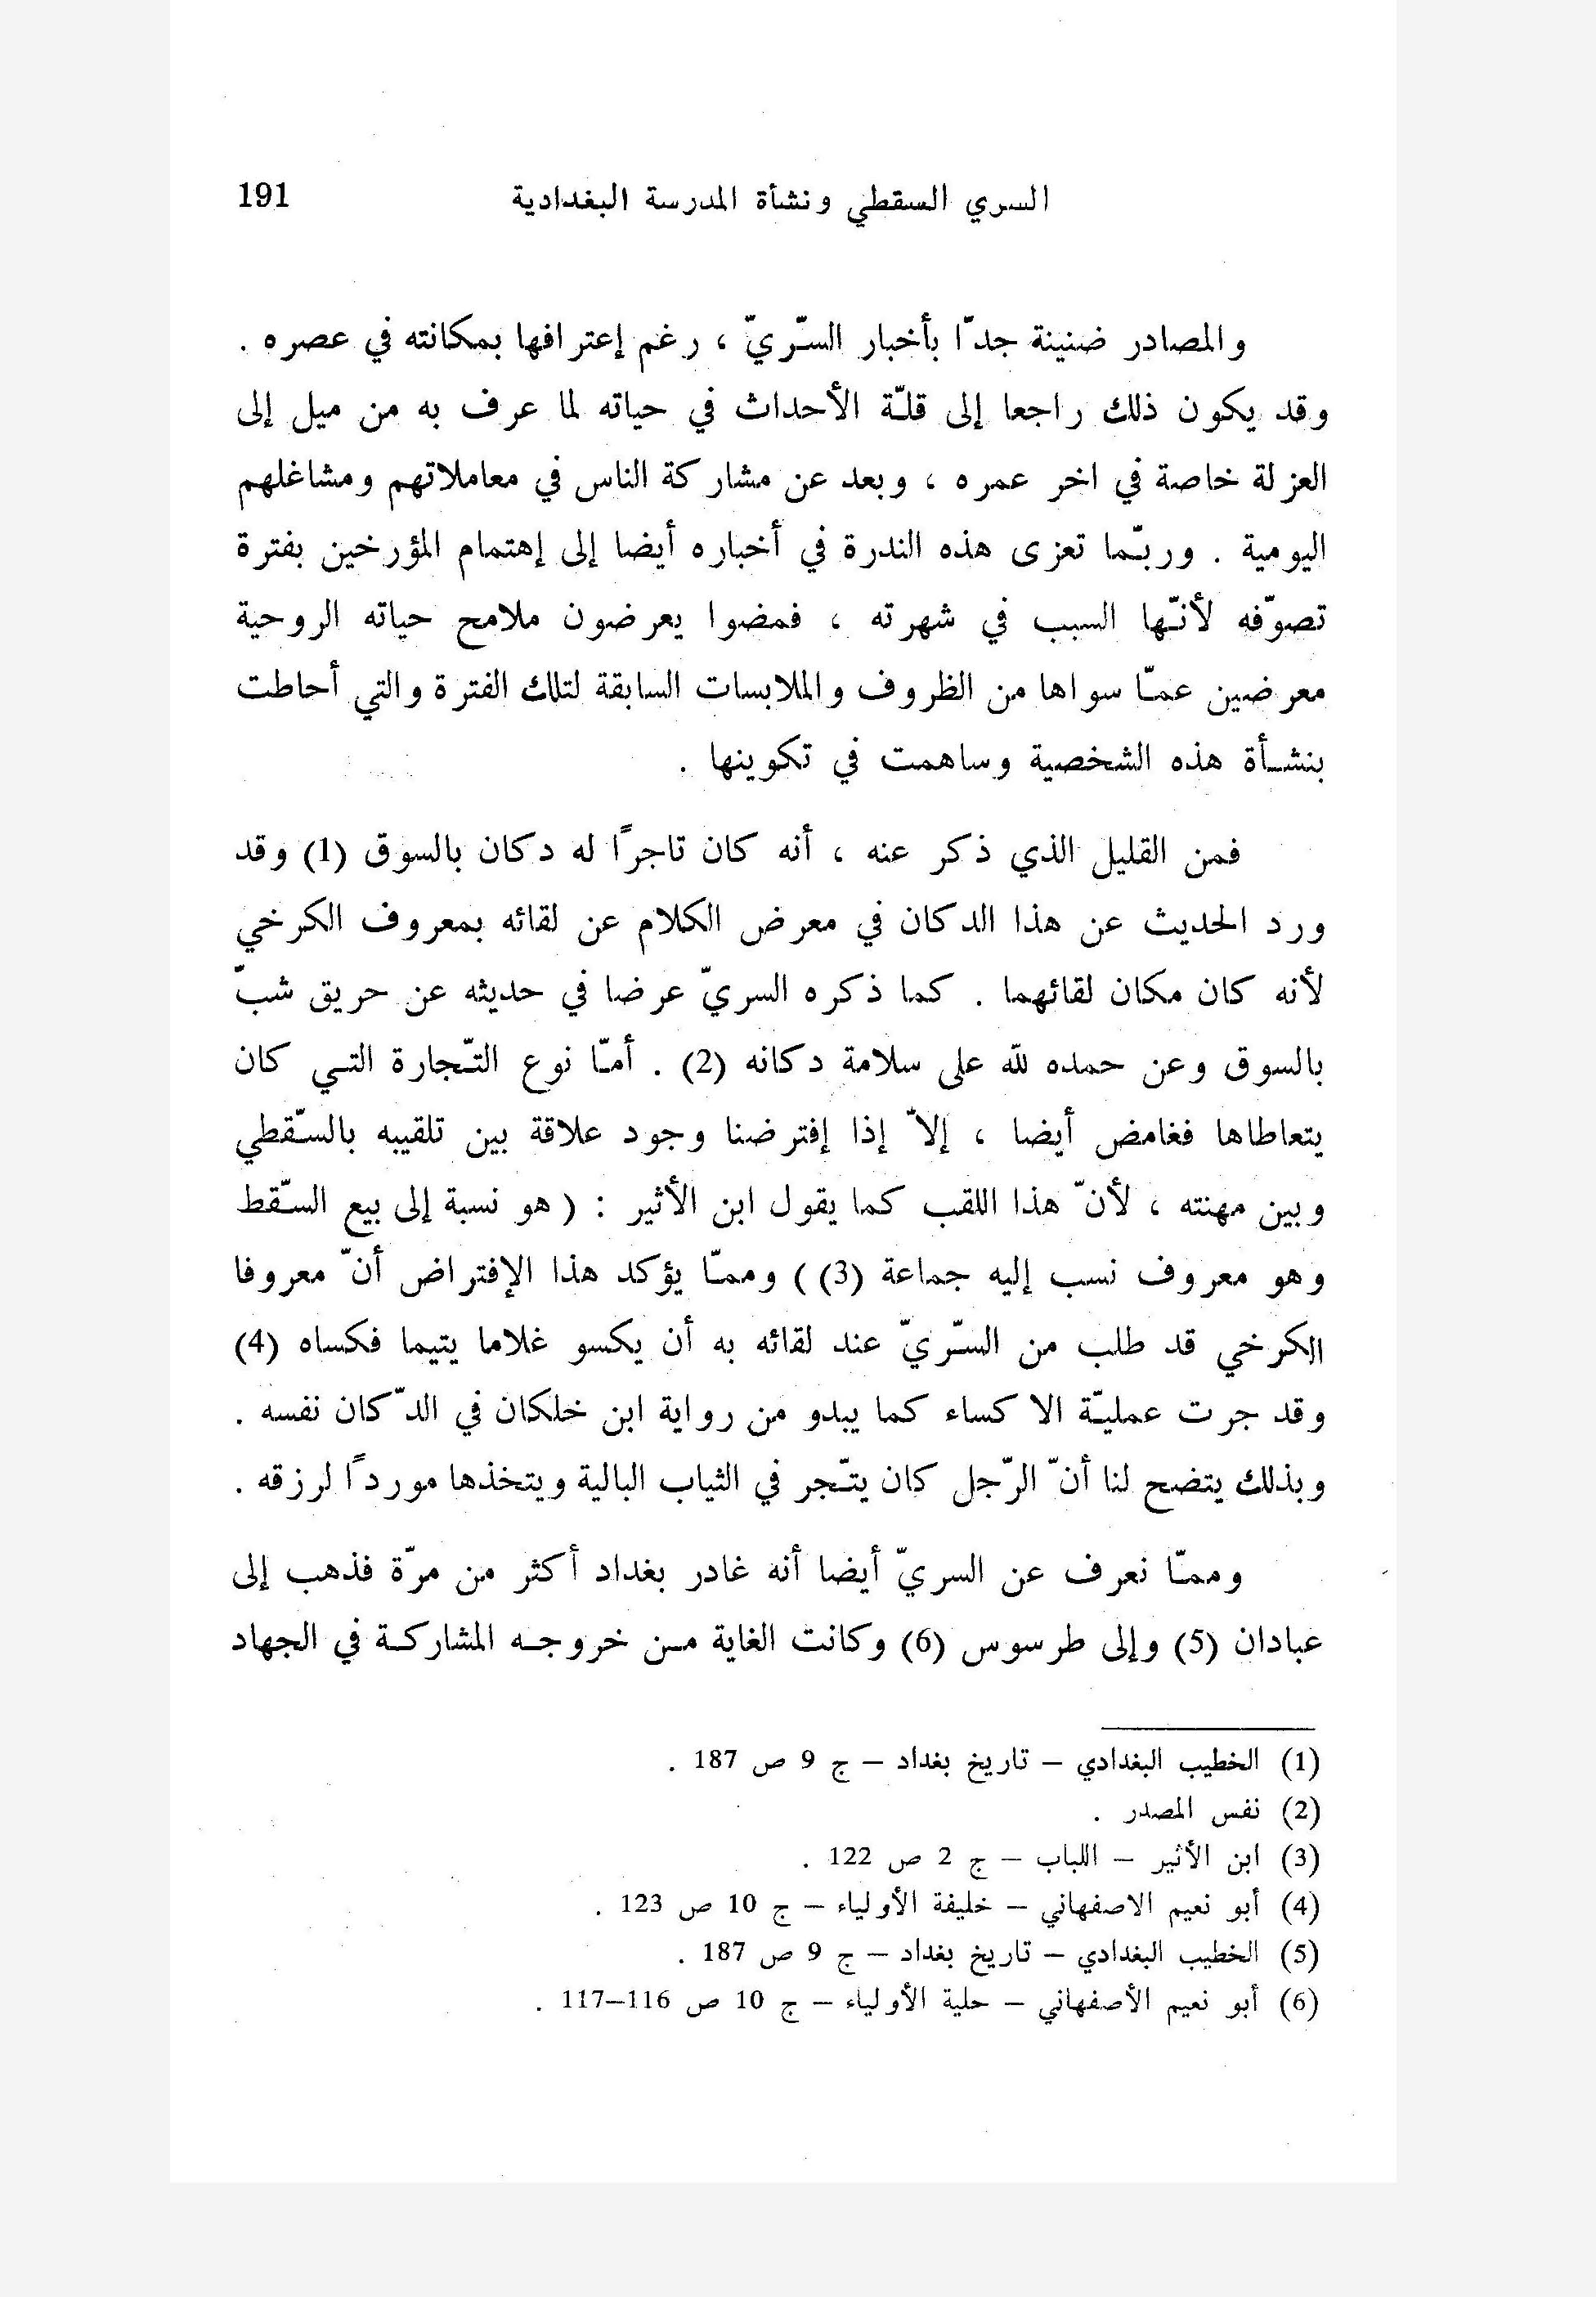 السري السقطي ونشأة المدرسة البغدادية 191
والمصادر ضنينة جدّا بأخبار السّريّ ، رغم إعترافها بمكانته في عصره .
وقد يكون ذلك راجعا إلى قلّة الأحداث في حياته لما عرف به من ميل إلى
العزلة خاصة في اخر عمره ، وبعد عن مشاركة الناس في معاملاتهم ومشاغلهم
اليومية . وربّما تعزى هذه الندرة في أخباره أيضا إلى إهتمام المؤرخين بفترة
تصوّفه لأنّها السبب في شهرته ، فمضوا يعرضون ملامح حياته الروحية
معرضين عمّا سواها من الظروف والملابسات السابقة لتلك الفترة والتي أحاطت
بنشأة هذه الشخصية وساهمت في تكوينها .
فمن القليل الذي ذكر عنه ، أنه كان تاجرًا له دكان بالسوق (1) وقد
ورد الحديث عن هذا الدكان في معرض الكلام عن لقائه بمعروف الكرخي
لأنه كان مكان لقائهما . كما ذكره السريّ عرضا في حديثه عن حريق شبّ
بالسوق وعن حمده لله على سلامة دكانه (2) . أمّا نوع التّجارة التي كان
يتعاطاها فغامض أيضا ، إلاّ إذا إفترضنا وجود علاقة بين تلقيبه بالسّقطي
وبين مهنته ، لأنّ هذا اللقب كما يقول ابن الأثير : ( هو نسبة إلى بيع السّقط
وهو معروف نسب إليه جماعة (3) ) وممّا يؤكد هذا الإفتراض أنّ معروفا
الكرخي قد طلب من السّريّ عند لقائه به أن يكسو غلاما يتيما فكساه (4)
وقد جرت عمليّة الاكساء كما يبدو من رواية ابن خلكان في الدّكان نفسه .
وبذلك يتضح لنا أنّ الرّجل كان يتّجر في الثياب البالية ويتخذها موردًا لرزقه .
وممّا نعرف عن السريّ أيضا أنه غادر بغداد أكثر من مرّة فذهب إلى
عبادان (5) وإلى طرسوس (6) وكانت الغاية من خروجه المشاركة في الجهاد
(1) الخطيب البغدادي – تاريخ بغداد – ج 9 ص 187 .
(2) نفس المصدر .
(3) ابن الأثير – اللباب – ج 2 ص 122 .
(4) أبو نعيم الاصفهاني – خليفة الأولياء – ج 10 ص 123 .
(5) الخطيب البغدادي – تاريخ بغداد – ج 9 ص 187 .
(6) أبو نعيم الأصفهاني – حلية الأولياء – ج 10 ص 116–117 .